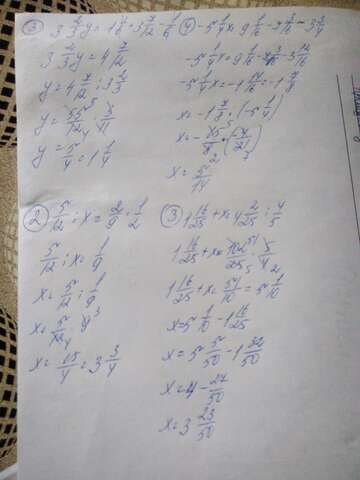 3 2/3 y = 1 1/6 + 3 7/12 - 1/6
3 2/3 y = 4 7/12
y = 4 7/12 : 3 2/3
y = 55/12 · 3/11
y = 5/4 = 1 1/4
④ -5 1/4 x = 9 1/16 - 3 3/4
-5 1/4 x = 9 1/16 - 3 12/16
-5 1/4 x = -1 14/16 = -1 7/8
x = -1 7/8 : (-5 1/4)
x = -15/8 · (-4/21)
x = 5/14
② 5/12 : x = 2/9 · 1/2
5/12 : x = 1/9
x = 5/12 : 1/9
x = 5/12 · 9
x = 15/4 = 3 3/4
③ 1 16/25 + x = 4 2/25 : 4/5
1 16/25 + x = 102/25 · 5/4
1 16/25 + x = 51/10 = 5 1/10
x = 5 1/10 - 1 16/25
x = 5 5/50 - 1 32/50
x = 4 - 27/50
x = 3 23/50